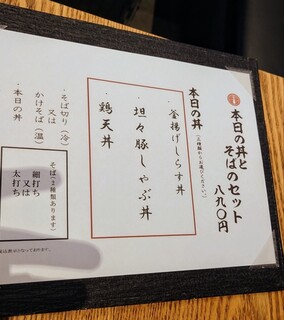 本日の丼と
そばのセット
八九〇円
本日の丼
(三種類からお選びください。)
・釜揚げしらす丼
・坦々豚しゃぶ丼
・鶏天丼
・そば切り(冷)
又は
かけそば(温)
・本日の丼
そば(2種類あります)
細打ち
又は
太打ち